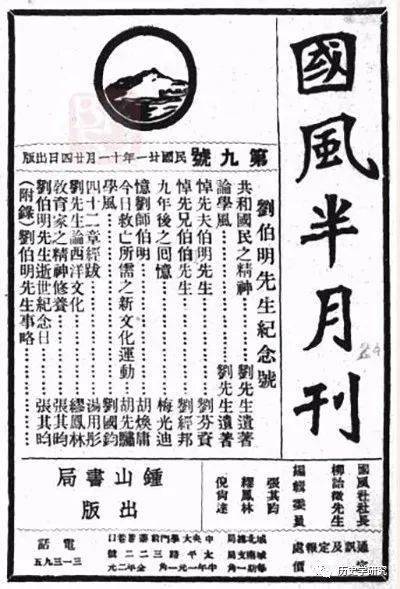 國風半月刊
第九號 民國廿一年十一月廿四日出版
劉伯明先生紀念號
共和國民之精神……劉先生遺著
論學風……劉先生遺著
悼先夫伯明先生……劉芬資
悼先兄伯明先生……劉經邦
九年後之回憶……梅光迪
憶劉師伯明……胡煥庸
今日救亡所需之新文化運動……胡先驌
學風……劉國鈞
四十二章經跋……湯用彤
劉先生論西洋文化……繆鳳林
教育家之精神修養……張其昀
劉伯明先生逝世紀念日……張其昀
(附錄)劉伯明先生事略……
國風社社長
柳詒徵先生
編輯委員
張其昀
繆鳳林
倪尚達
鍾山書局
出版
通訊及定報處
電話
三一三九五
历史学研究